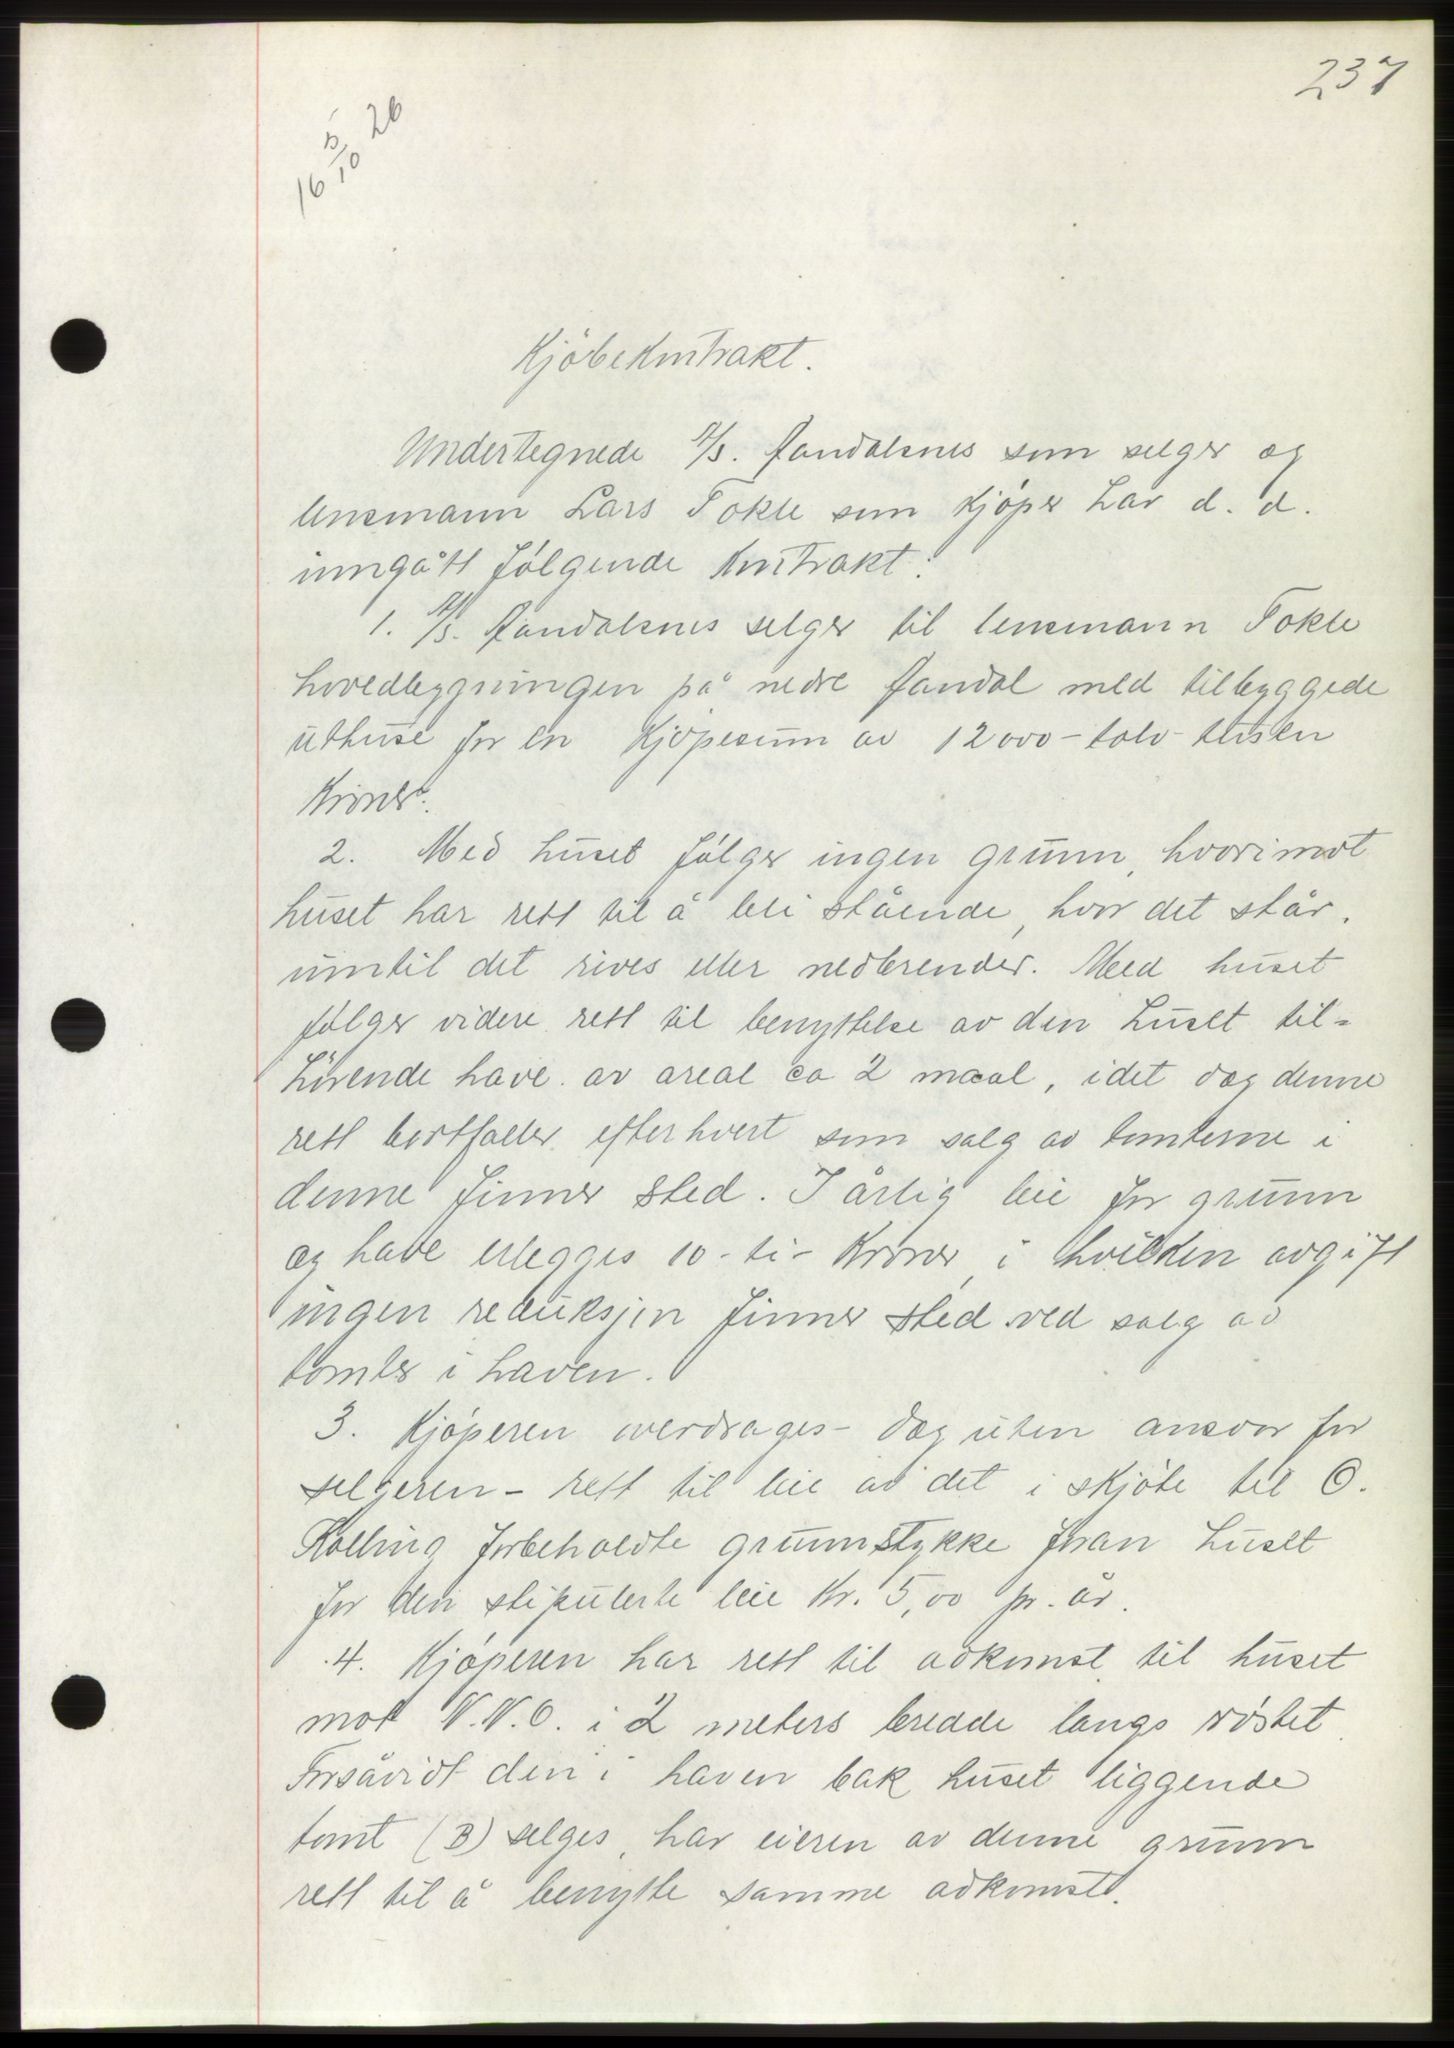 237
16 5/10 26
Kjöbekontrakt.
Undertegnede A/S. Aandalsnes som selger og
lensmann Lars Tokle som kjöper har d. d.
inngått følgende kontrakt:
1. A/S. Aandalsnes selger til lensmann Tokle
hovedbygningen på nedre Aandal med tilbyggede
uthuse for en kjøpesum av 12000 - tolv - tusen
kroner.
2. Med huset følger ingen grunn, hvorimot
huset har rett til å bli stående, hvor det står,
inntil det rives eller nedbrender. Med huset
følger videre rett til benyttelse av den huset til-
hörende have av areal ca 2 maal, idet dog denne
rett bortfaller efterhvert som salg av tomterne i
denne finner sted. I årlig leie for grunn
og have erlegges 10 - ti - kroner, i hvilken avgift
ingen reduksjon finner sted ved salg av
tomter i haven.
3. Kjöperen overdrages - dog uten ansvar for
selgeren - rett til leie av det i skjöte til O.
Kolling forbeholdte grunnstykke foran huset
for den stipulerte leie kr. 5,00 pr. år.
4. Kjöperen har rett til adkomst til huset
mot N.N.O. i 2 meters bredde langs röstet.
Forsåvidt den i haven bak huset liggende
tomt (B) selges, har eieren av denne grunn
rett til å benytte samme adkomst.